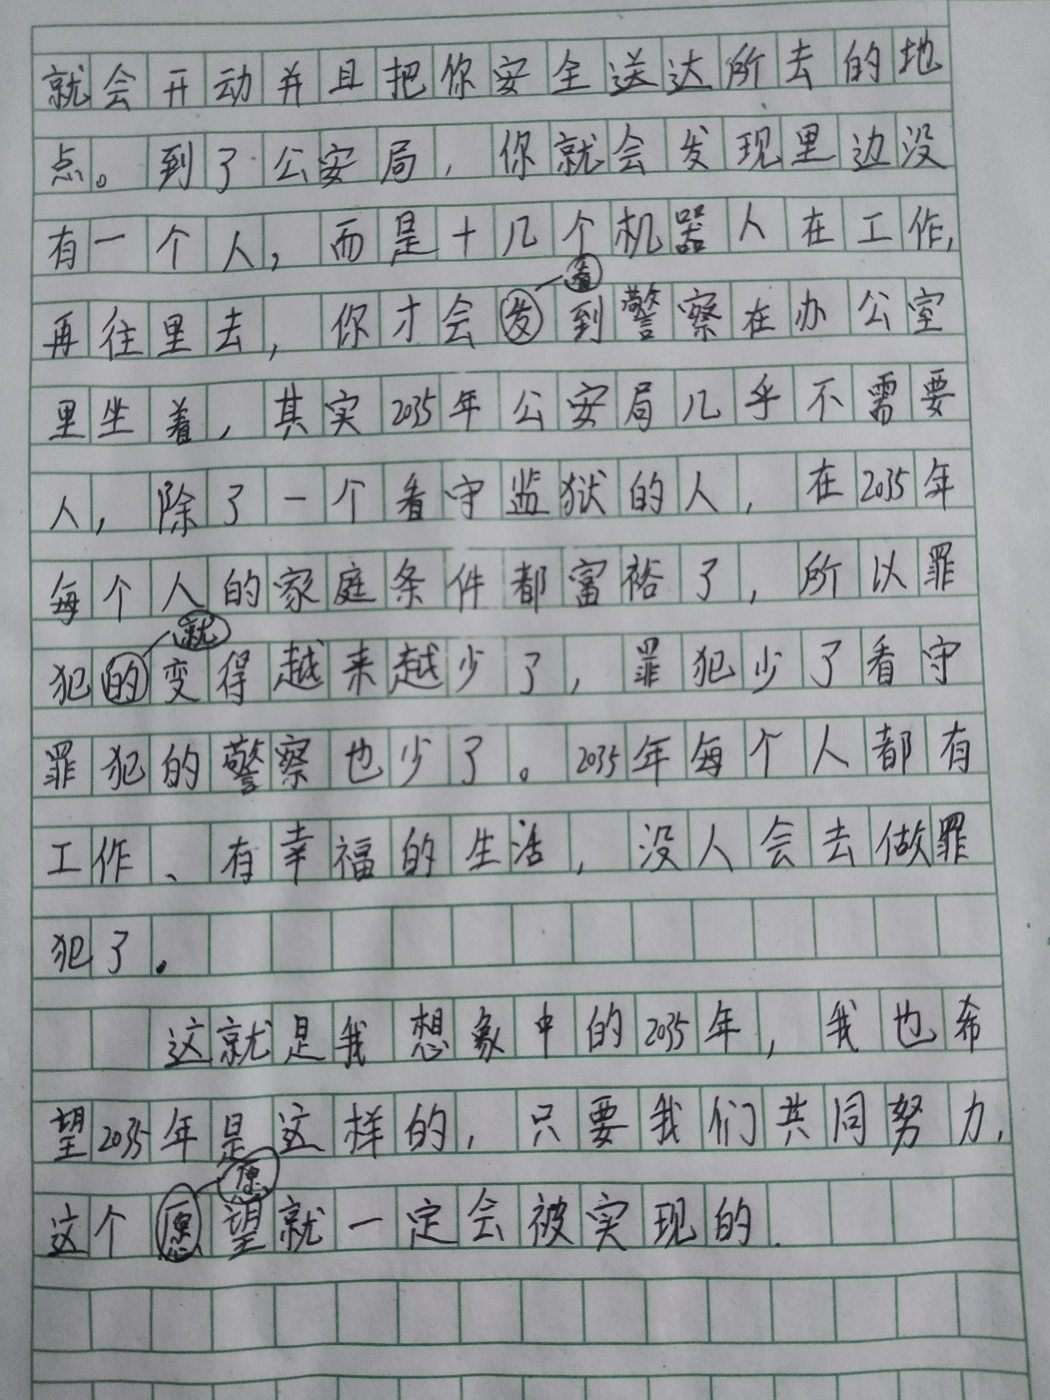 就会开动并且把你安全送达所去的地
点。到了公安局,你就会发现里边没
有一个人,而是十几个机器人在工作,
看
再往里去,你才会发到警察在办公室
里坐着,其实2035年公安局几乎不需要
人,除了一个看守监狱的人,在2035年
每个人的家庭条件都富裕了,所以罪
就
犯的变得越来越少了,罪犯少了看守
罪犯的警察也少了。2035年每个人都有
工作、有幸福的生活,没人会去做罪
犯了.
这就是我想象中的2035年,我也希
望2035年是这样的,只要我们共同努力,
愿
这个愿望就一定会被实现的.